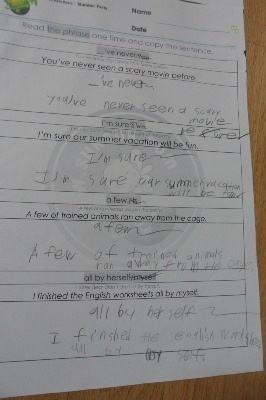 Name
Date
Read the phrase one time and copy the sentence.
've never
You've never seen a scary movie before.
've never
You've never seen a scary
movie
I'm sure
I'm sure our summer vacation will be fun.
I'm sure
I'm sure our summer vacation
will be fun
a few
A few of trained animals ran away from the cage.
a few
A few of trained animals
ran away from the cage
all by herself/myself
I finished the English worksheets all by myself.
all by herself
I finished the english
all by self.